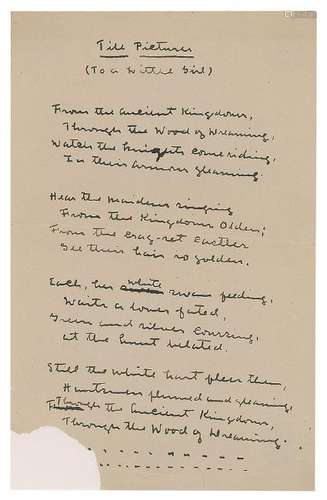 Tile Pictures
(To a Little Girl)
From the Ancient Kingdoms,
Through the Wood of Dreaming,
Watch the knights come riding,
In their armour gleaming.
Hear the maidens singing
From the Kingdoms Olden;
From the crag-set Castles
See their hair so golden.
Each, her white swan feeding,
Waits a lover fated,
Green and silver coursing,
at the hunt belated.
Still the white hart flees them,
Huntsmen plumed and gleaming,
Through the Ancient Kingdoms,
Through the Wood of Dreaming.